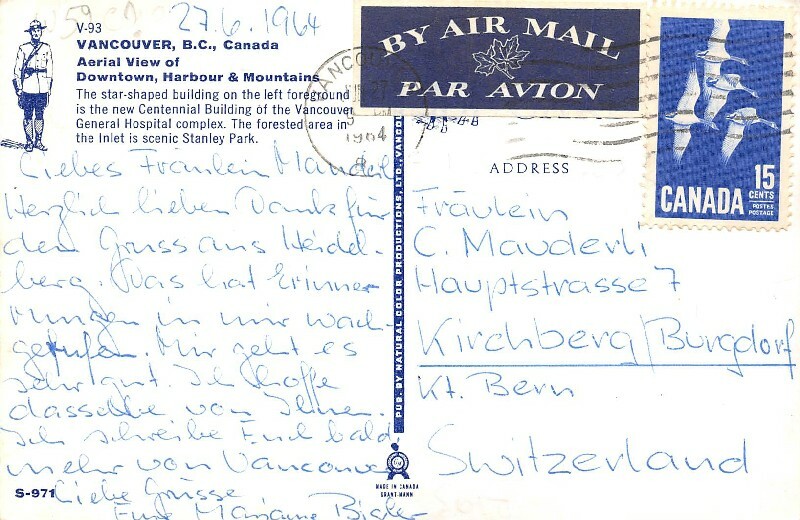 27.6.1964
V-93
VANCOUVER, B.C., Canada
Aerial View of
Downtown, Harbour & Mountains
The star-shaped building on the left foreground
is the new Centennial Building of the Vancouver
General Hospital complex. The forested area in
the Inlet is scenic Stanley Park.
Liebes Fräulein Mauderli
Herzlich lieben Dank für
den Gruss aus Heidel-
berg. Das hat Erinner
rungen in mir wach-
gerufen. Mir geht es
sehr gut. Ich hoffe
dasselbe von Ihnen.
Ich schreibe Euch bald
mehr von Vancouver
Liebe Grüsse
Eure Mariane Bigler
S-971
PUB. BY NATURAL COLOR PRODUCTIONS, LTD., VANCOU
MADE IN CANADA
GRANT-MANN
BY AIR MAIL
PAR AVION
VANCOU
27
1964
15
CENTS
CANADA
POSTES
POSTAGE
ADDRESS
Fräulein
C. Mauderli
Hauptstrasse 7
Kirchberg/Burgdorf
Kt. Bern
Switzerland